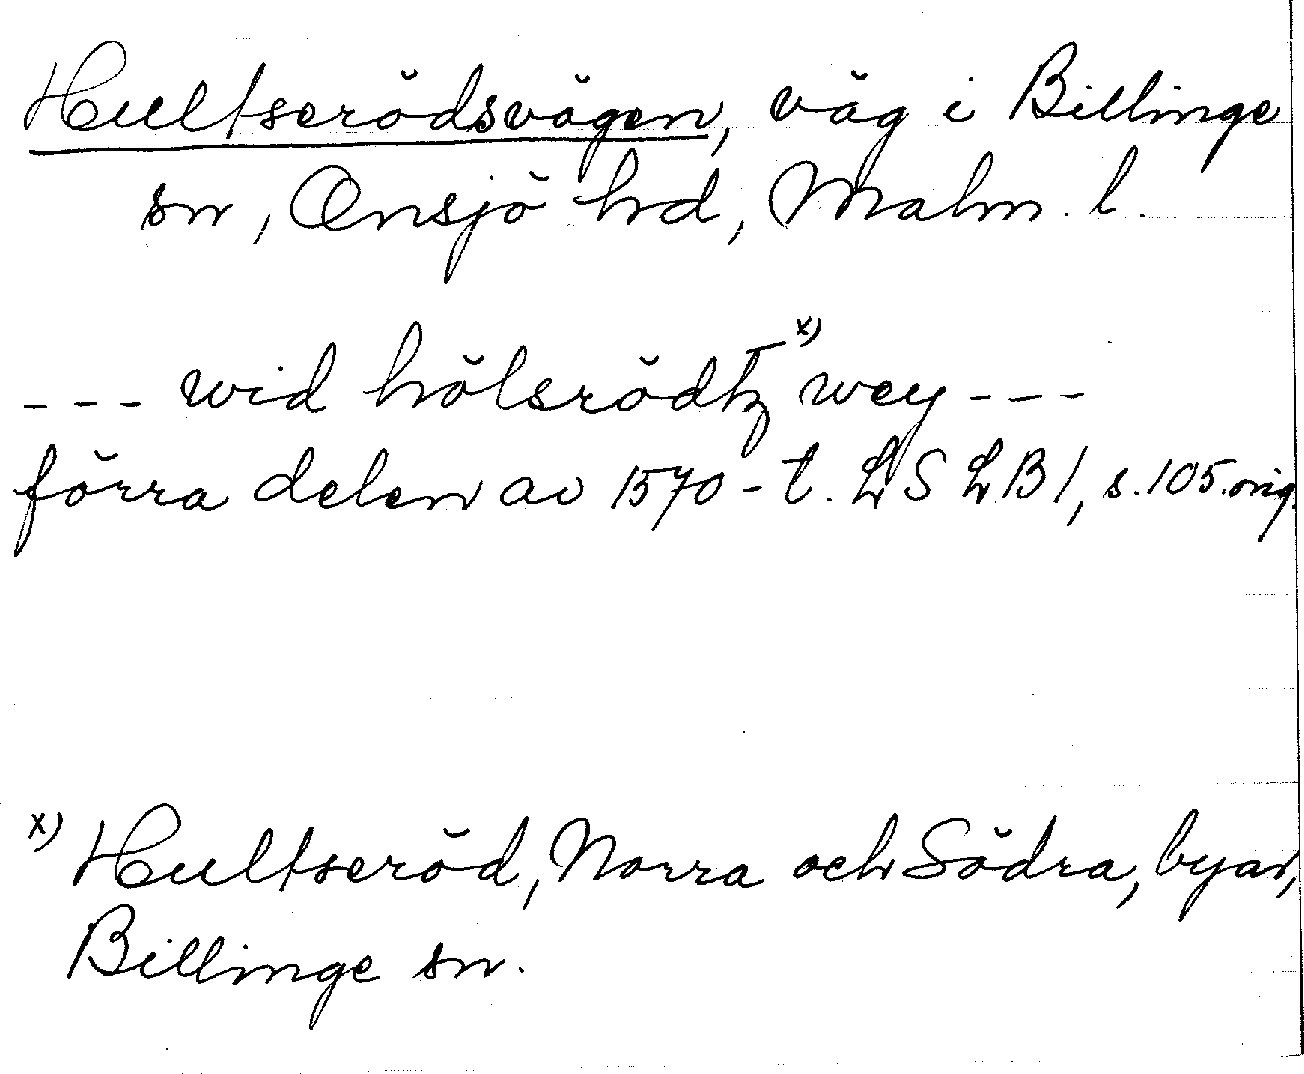 Hultserödsvägen, väg i Billinge
sn, Onsjö hd, Malm. l.
--- wid hölsrödtz x) wey ---
förra delen av 1570-t. LSLB 1, s. 105. orig.
x) Hultseröd, Norra och Södra, byar,
Billinge sn.